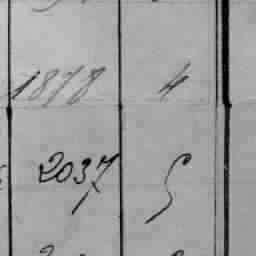 1878 4
2037 5